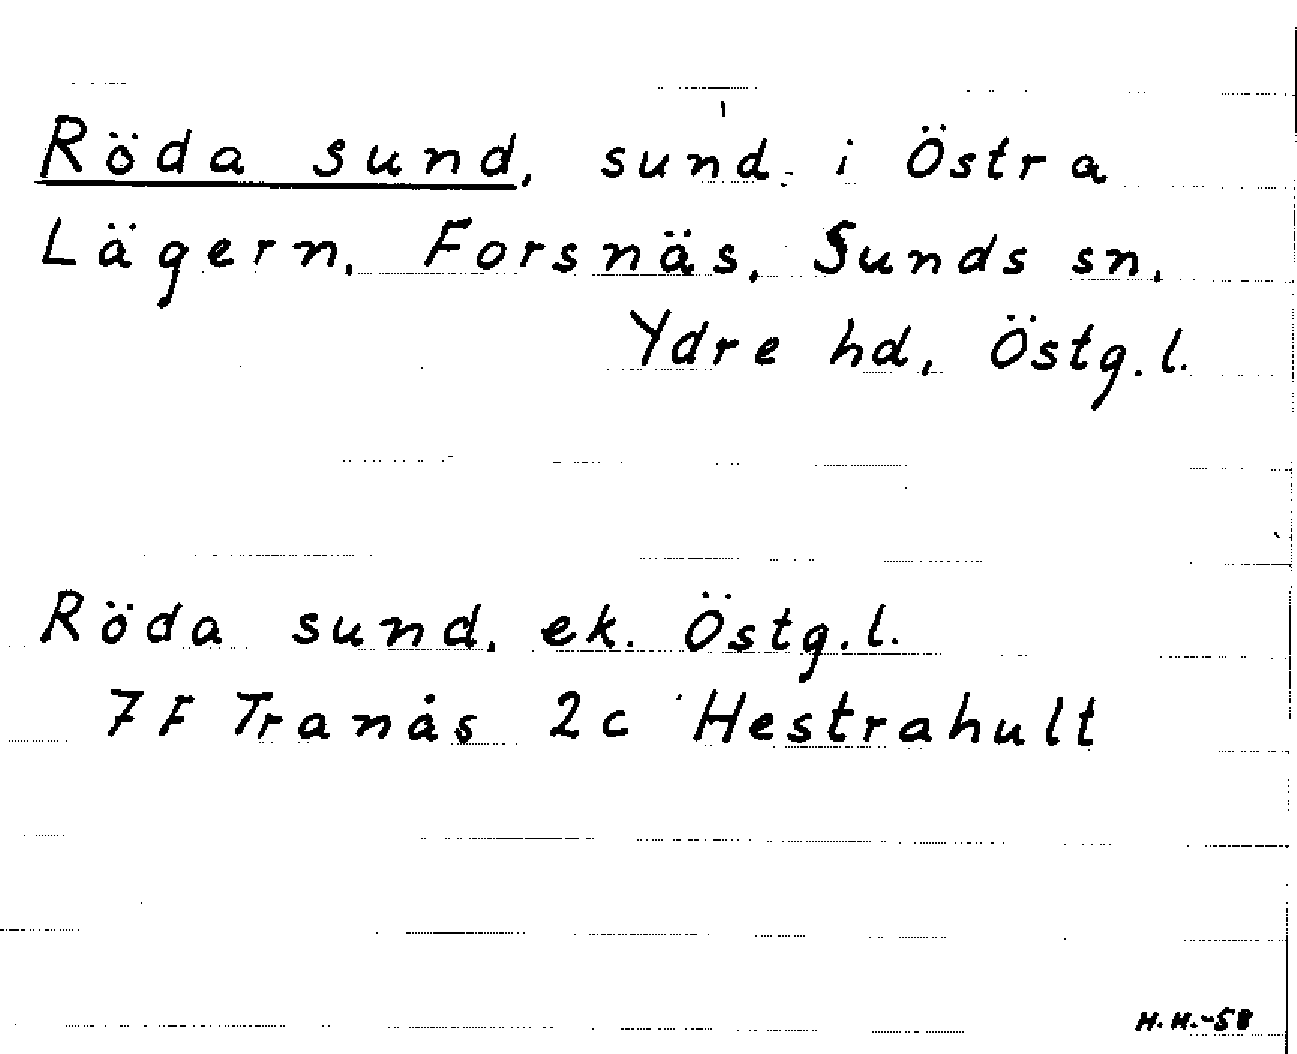 Röda sund, sund i Östra
Lägern, Forsnäs, Sunds sn,
Ydre hd, Östg.l.
Röda sund, ek. Östg.l.
7F Tranås 2c Hestrahult
H.H.-58